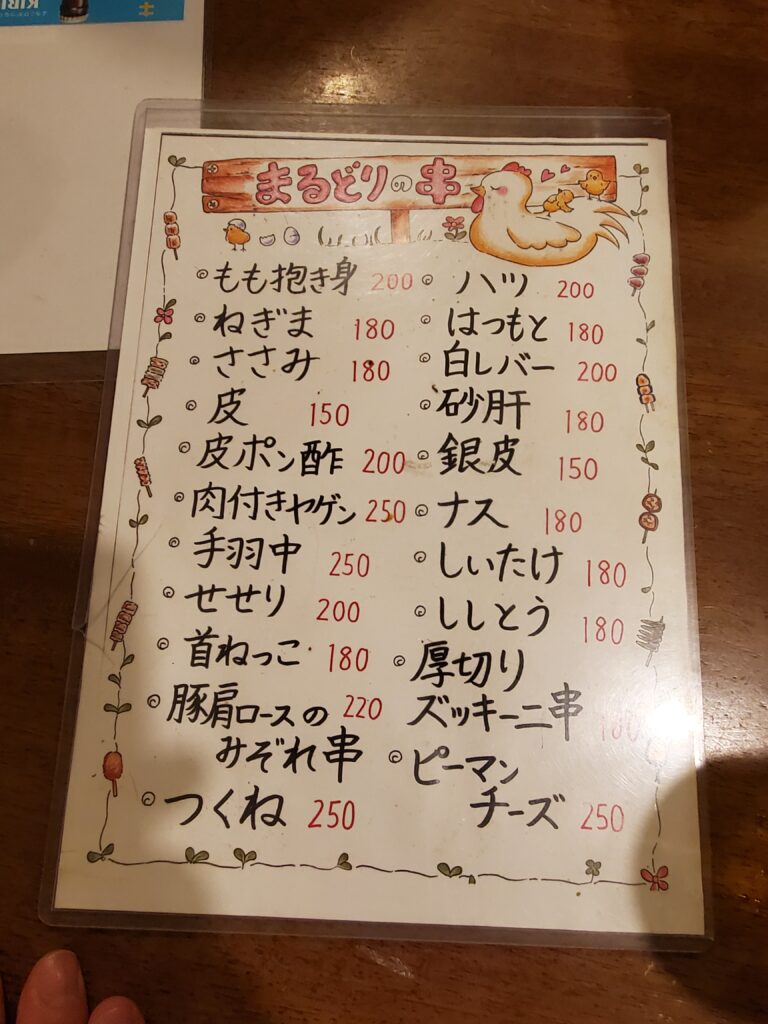 KIRI
まるどりの串
もも抱き身 200
ねぎま 180
ささみ 180
皮 150
皮ポン酢 200
肉付きヤゲン 250
手羽中 250
せせり 200
首ねっこ 180
豚肩ロースの 220
みぞれ串
つくね 250
ハツ 200
はつもと 180
白レバー 200
砂肝 180
銀皮 150
ナス 180
しいたけ 180
ししとう 180
厚切り
ズッキーニ串
ピーマン
チーズ 250